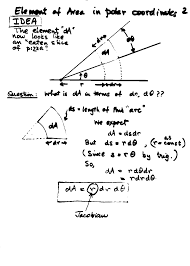 Element of Area in polar coordinates 2
IDEA
The element "dA"
now looks like
an "eaten slice
of pizza"
dr
dθ
dA
r
θ
dr
Question: What is dA in terms of dr, dθ ??
ds = length of this "arc"
dA
dr
We expect
dA = ds dr
But ds = r dθ , (r = const)
(Since s = rθ by trig.)
So,
dA = r dθ dr
= r dr dθ
dA = r dr dθ
Jacobian